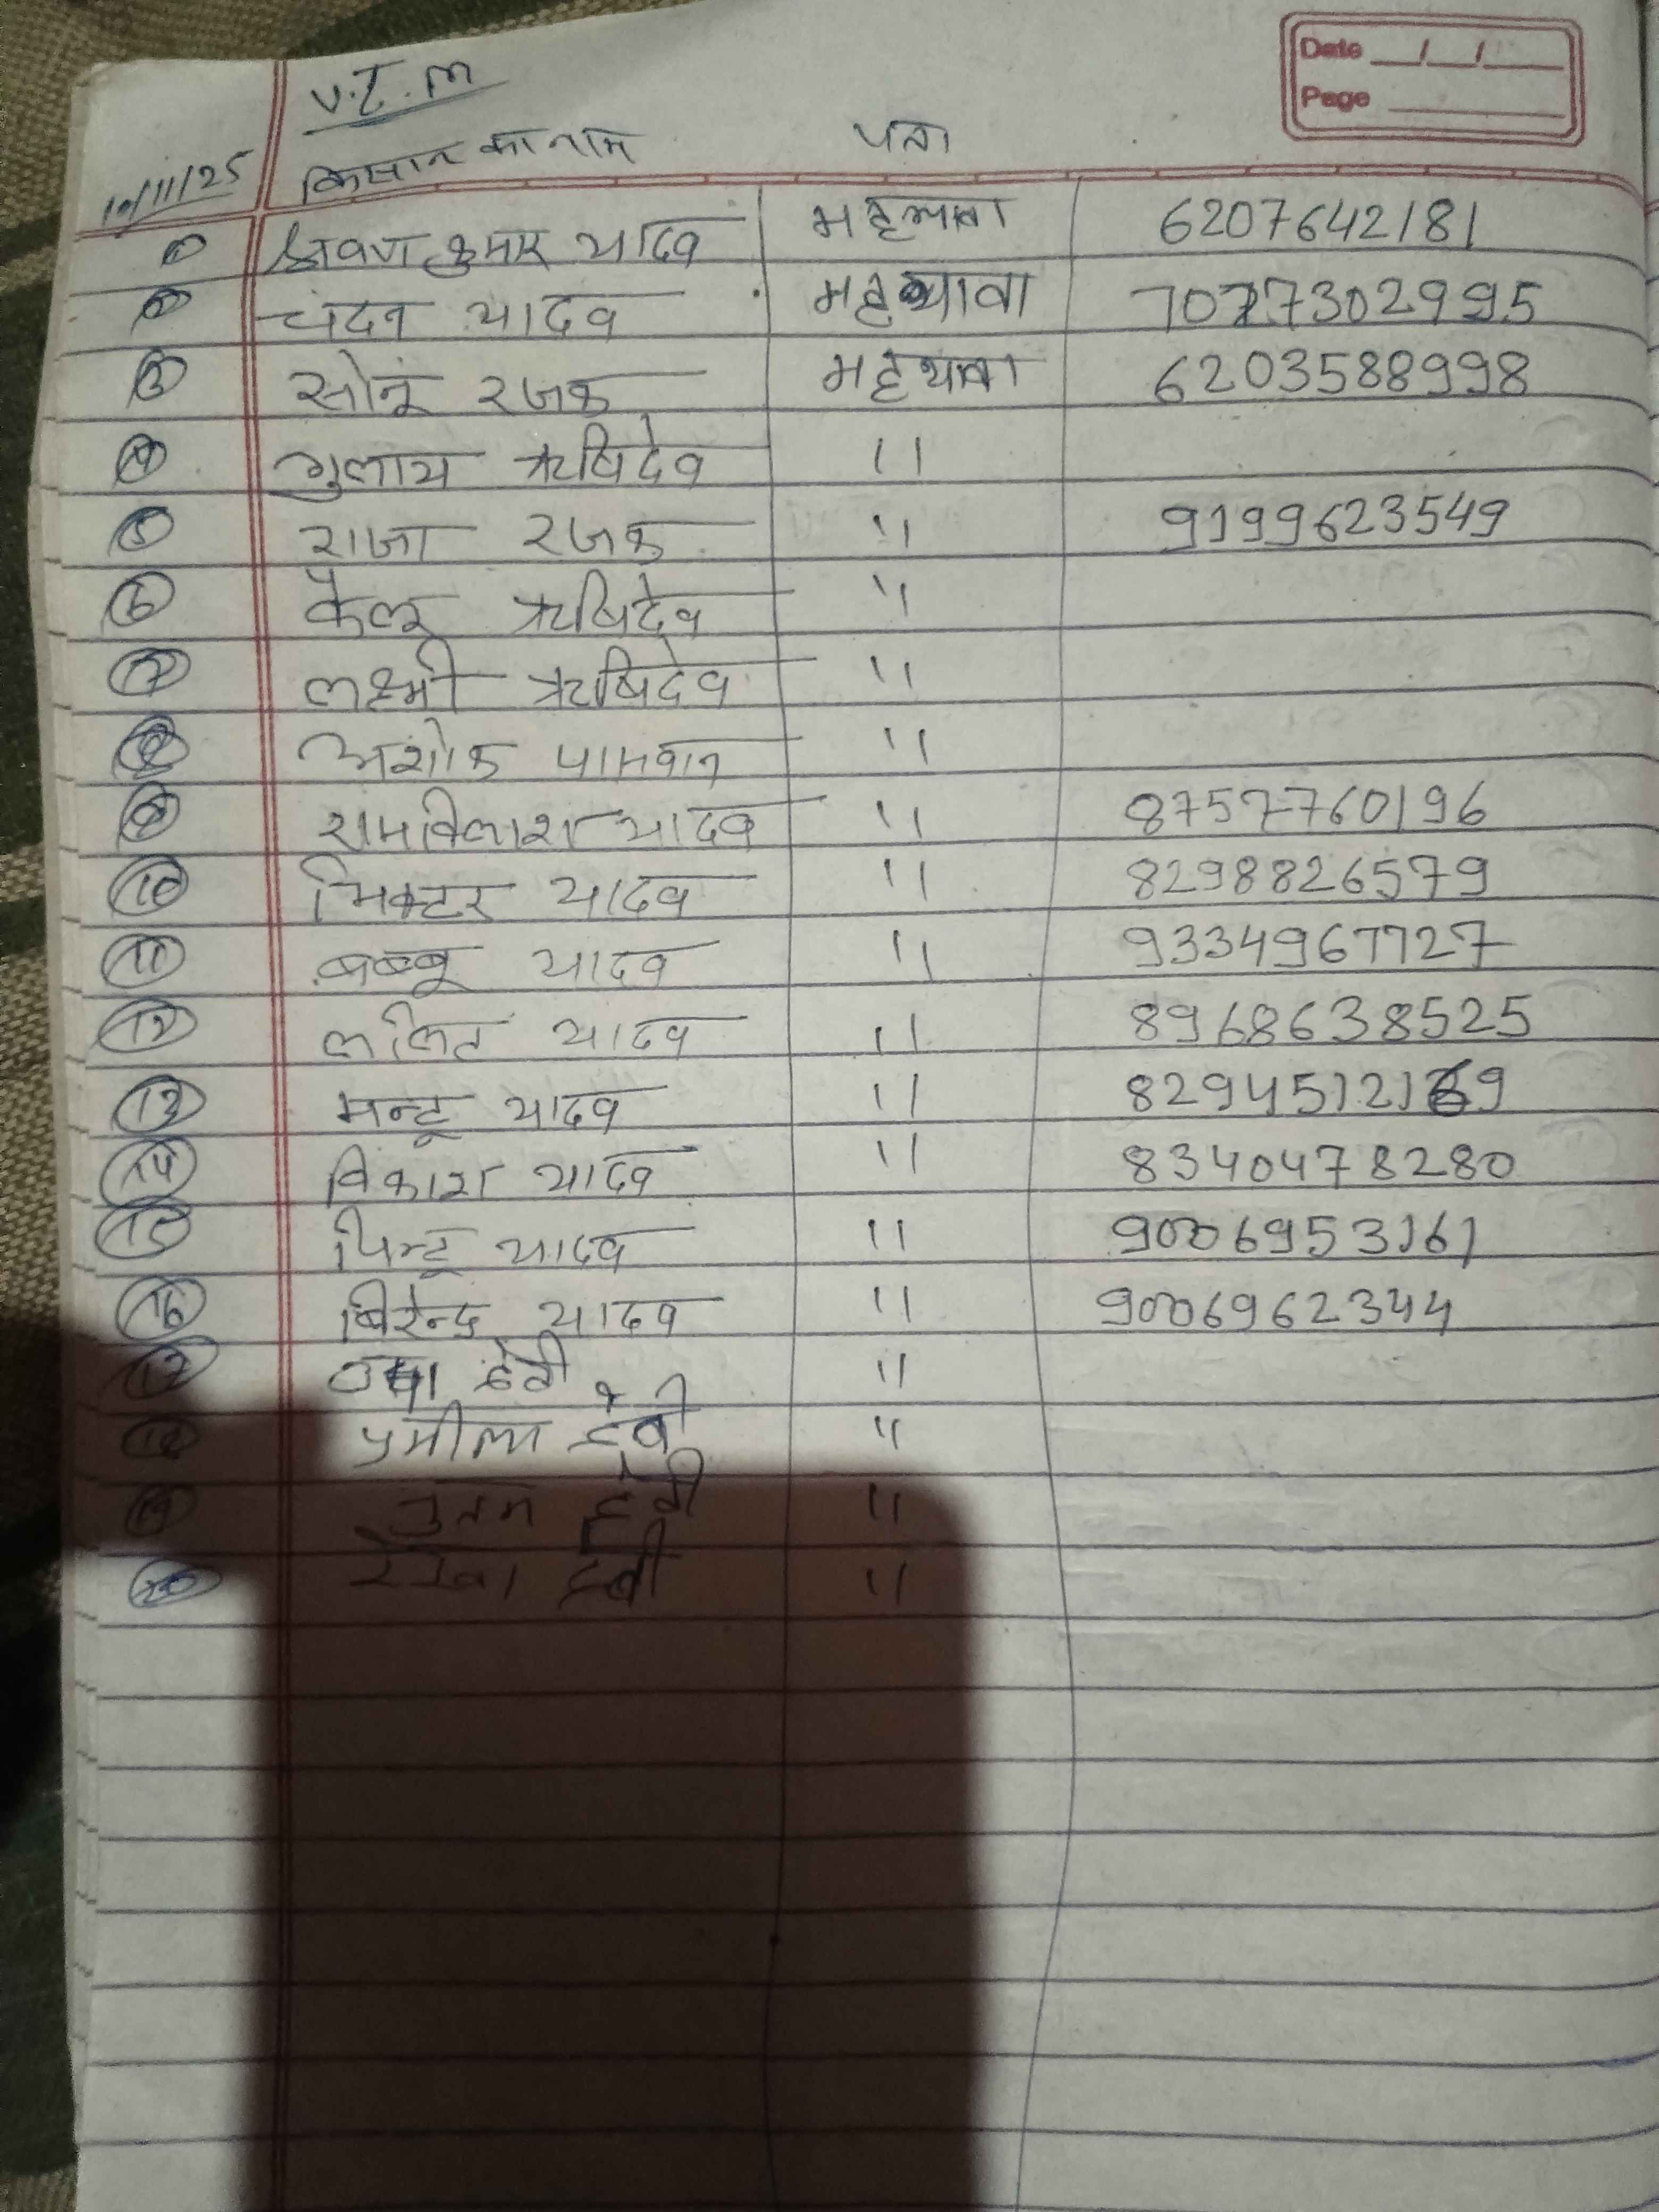 Date __/__/__
Page
V.T.M
10/11/25 किसान का नाम पता
1 श्रवण कुमार यादव महथावा 6207642181
2 चंदन यादव महथावा 7077302995
3 सोनू रजक महथावा 6203588998
4 गुलाय ऋषिदेव "
5 राजा रजक " 9199623549
6 कैलू ऋषिदेव "
7 लक्ष्मी ऋषिदेव "
8 अशोक पासवान "
9 रामविलाश यादव " 8757760196
10 यादव " 8298826579
11 बब्बू यादव " 9334967727
12 ललित यादव " 8968638525
13 मन्टू यादव " 8294512169
14 विकाश यादव " 8340478280
15 पिन्टू यादव " 9006953161
16 बिरेन्द्र यादव " 9006962344
17 देवी "
18 प्रमीला देवी "
19 देवी "
20 रेखा देवी "